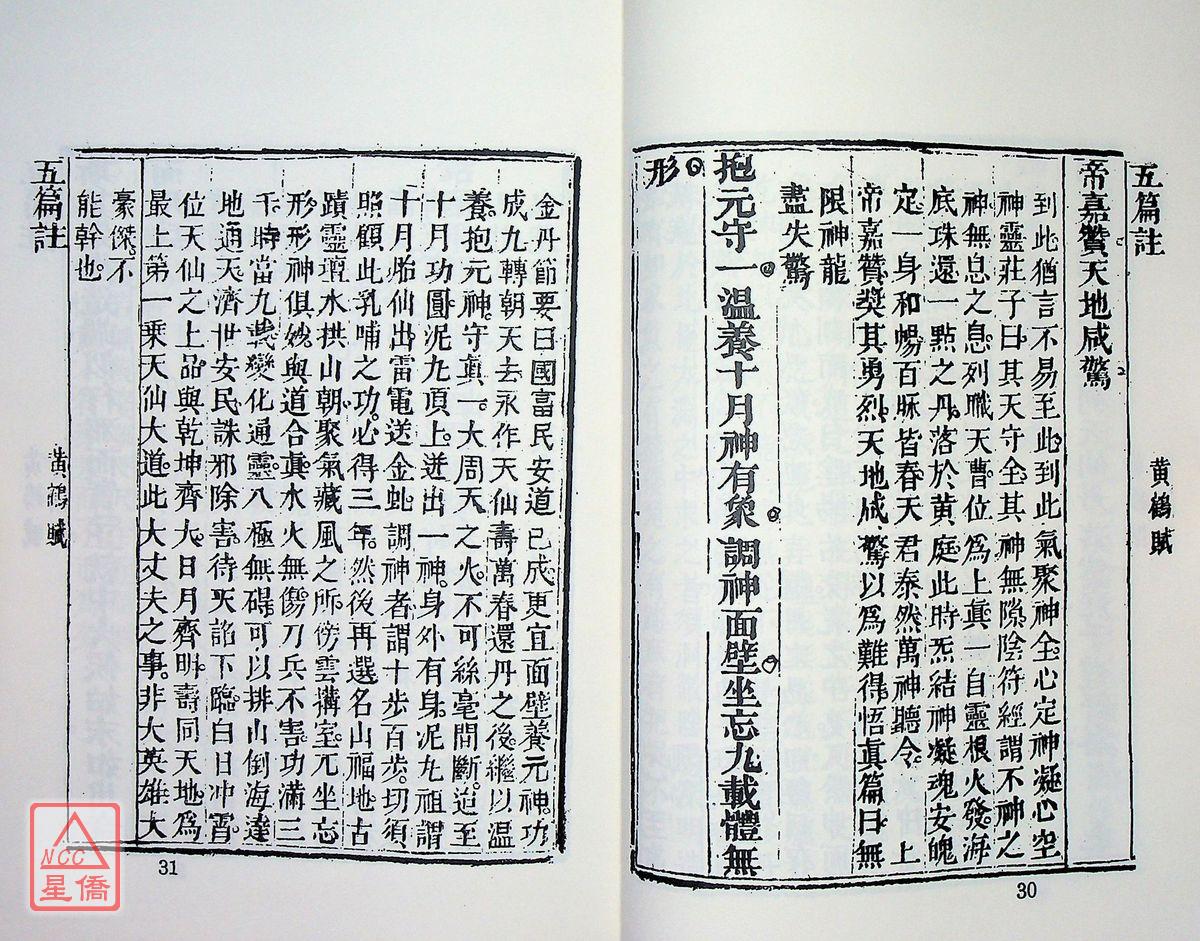 五篇註
黄鶴賦
帝嘉贊天地咸驚
到此猶言不易至此到此氣聚神全心定神凝心空
神靈莊子曰其天守全其神無隙陰符經謂不神之
神無息之息列職天曹位爲上眞一自靈根火發海
底珠還一點之丹落於黄庭此時炁結神凝魂安魄
定一身和暢百脉皆春天君泰然萬神聽令上
帝嘉贊奬其勇烈天地咸驚以爲難得悟眞篇曰無
限神龍
盡失驚
抱元守一溫養十月神有象調神面壁坐忘九載體無
形
30
金丹節要曰國富民安道已成更宜面壁養元神功
成九轉朝天去永作天仙壽萬春還丹之後繼以溫
養抱元神守眞一大周天之火不可絲毫間斷迨至
十月功圓泥九項上迸出一神身外有身泥九祖謂
十月胎仙出雷電送金虬調神者謂十步百步切須
照顧此乳哺之功必得三年然後再選名山福地古
蹟靈壇水拱山朝聚氣藏風之所傍雲搆室兀坐忘
形形神俱妙與道合眞水火無傷刀兵不害功滿三
千時當九載變化通靈八極無碍可以排山倒海達
地通天濟世安民誅邪除害待天詔下臨白日冲霄
位天仙之上品與乾坤齊久日月齊明壽同天地爲
最上第一乘天仙大道此大丈夫之事非大英雄大
豪傑不
能幹也
五篇註
黄鶴賦
31
NCC
星僑